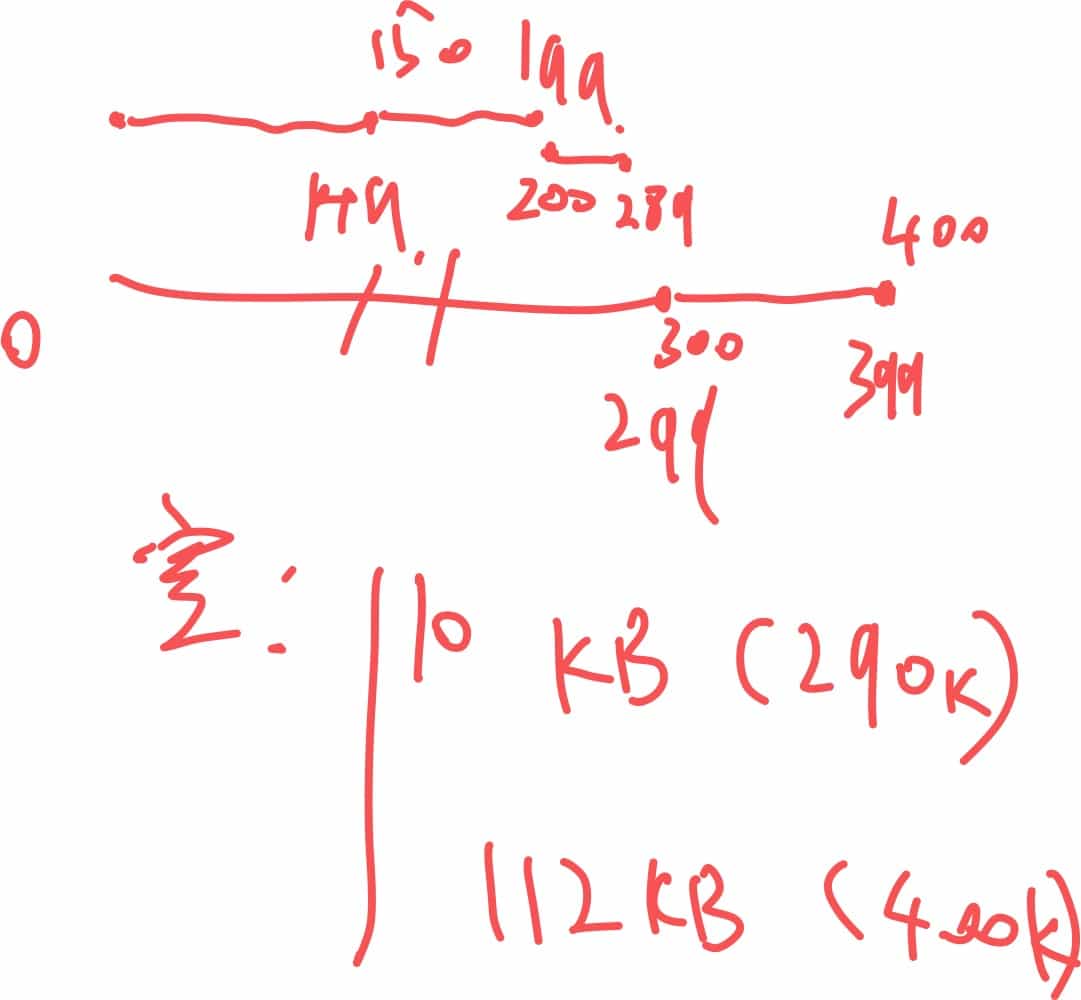 150 199.
149.
200 289
400
0
300
399
299
空:
10 KB (290K)
112KB (400K)